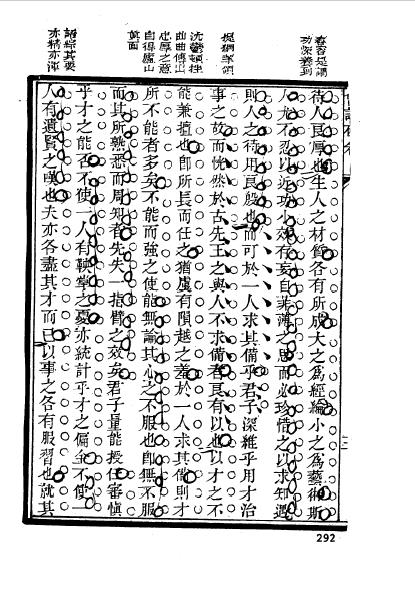 功深養到
提綱挈領
沈鬱頓挫
曲曲傳出
忠厚之意
自得廬山
真面
語綜其要
亦精亦渾
待人良厚也生人之材質各有所成大之為經綸小之為藝術斯
人尤不忍以近功小效有妄自菲薄之思而必珍惜之以求知遇
則人之待用良殷也而可於一人求其備乎君子深維乎用才治
事之故而恍然於古先王之與人不求備者良有以也以才之不
能兼擅也卽所長而任之猶虞有隕越之羞於一人求其備則才
所不能者多矣不能而強之使能無論其心之不服也卽無不服
而其所熟悉而周知者先失一指臂之效矣君子量能授任審慎
乎才之能否不使一人有鞅掌之憂亦統計乎才之偏全不使一
人有遺賢之嘆也夫亦各盡其才而已以事之各有服習也就其
292